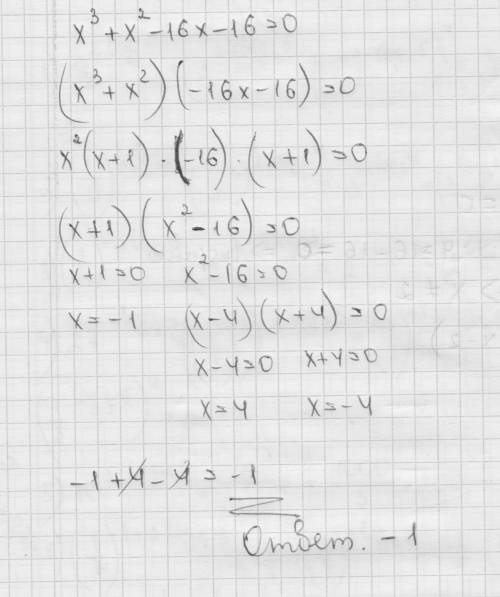 x³ + x² - 16x - 16 = 0
(x³ + x²) (-16x - 16) = 0
x² (x+1) · (-16) · (x+1) = 0
(x+1) (x² - 16) = 0
x+1=0 x² - 16 = 0
x = -1 (x-4) (x+4) = 0
x-4=0 x+4=0
x=4 x=-4
-1 + 4 - 4 = -1
Ответ. -1